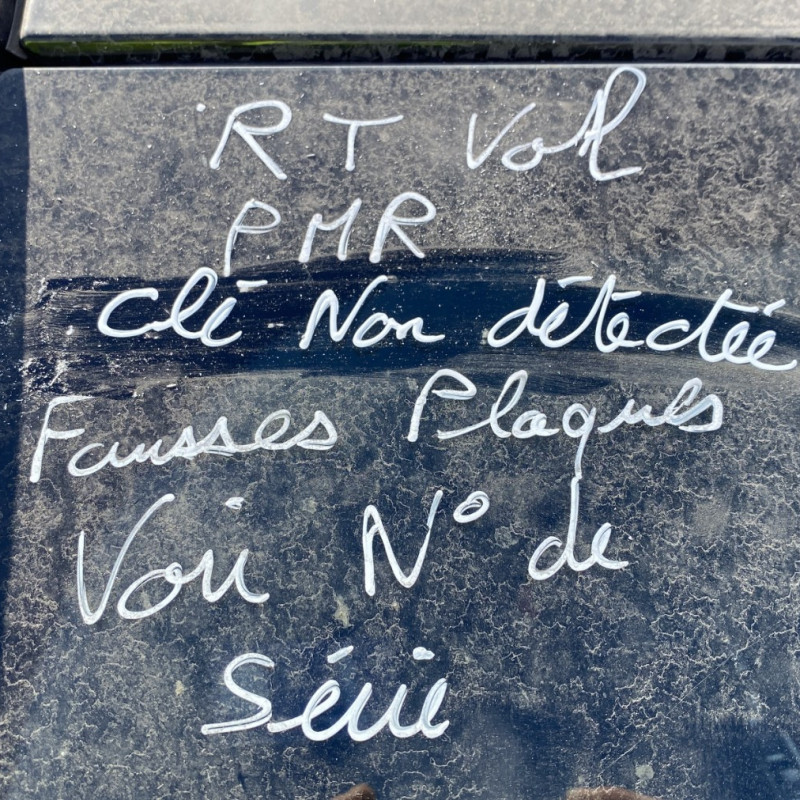 RT Vol
PMR
Clé Non détectée
Fausses Plaques
Voir N° de
Série